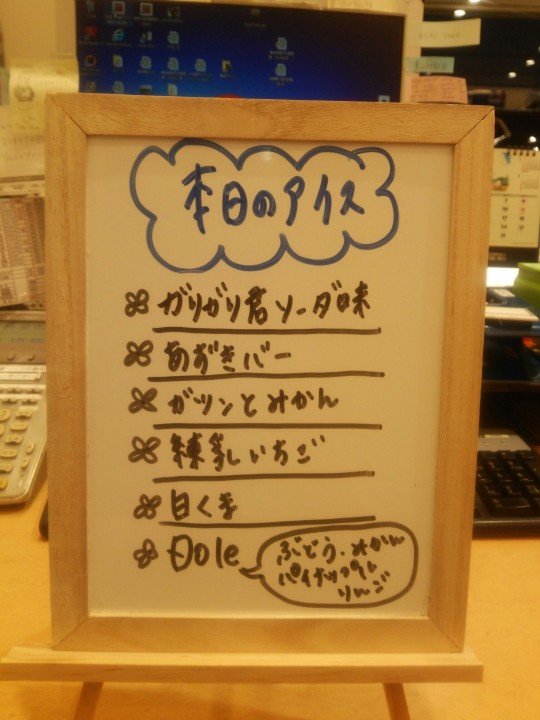 本日のアイス
ガリガリ君ソーダ味
あずきバー
ガツンとみかん
練乳いちご
白くま
Dole
ぶどう・みかん
パイナップル
りんご